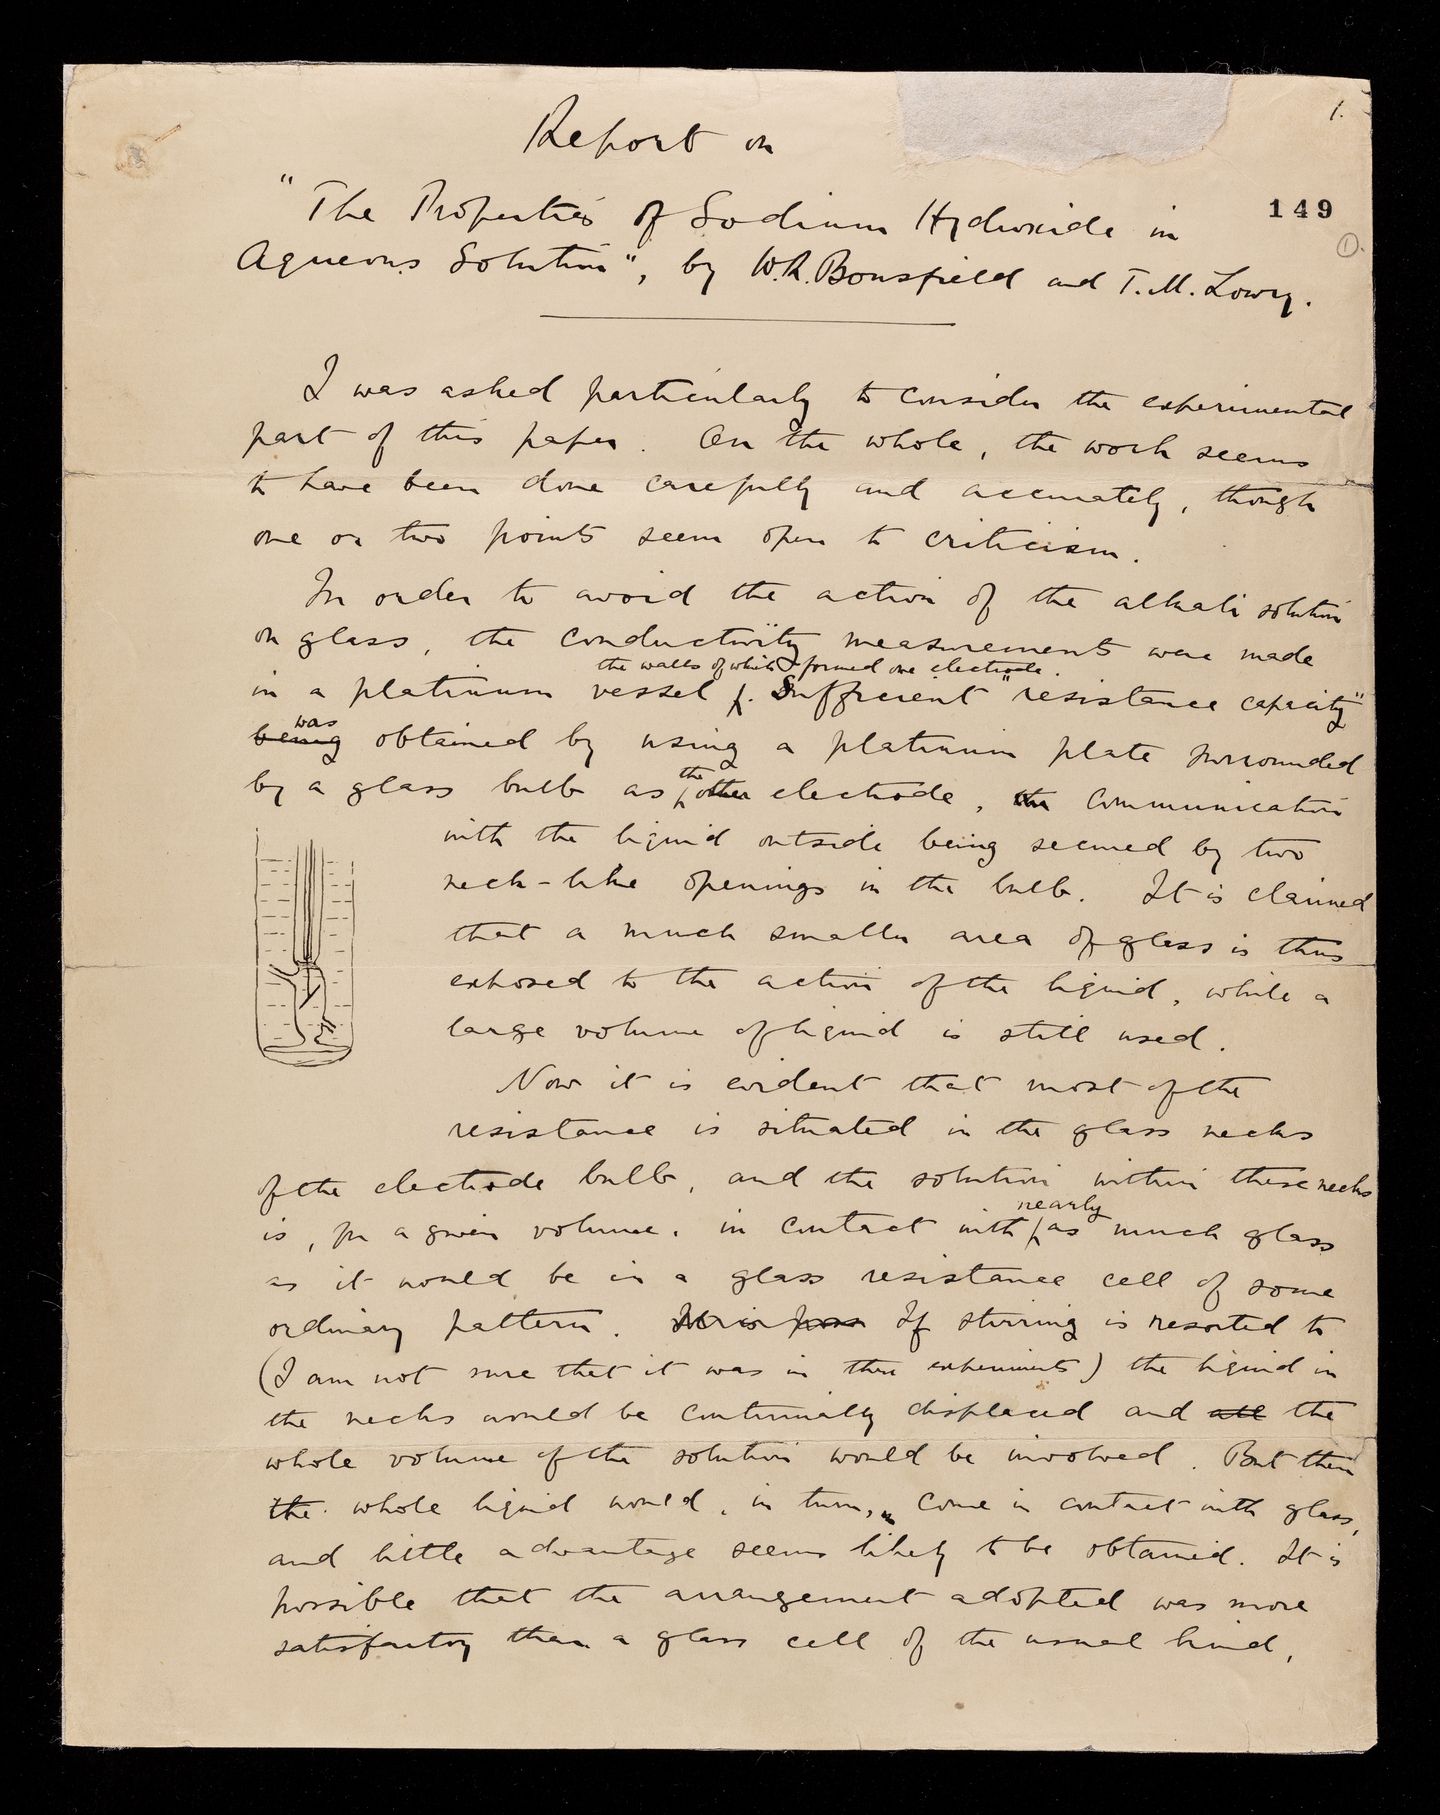 1.
Report on
149
"The Properties of Sodium Hydroxide in
1.
Aqueous Solution", by W.R. Bousfield and T.M. Lowry.
I was asked particularly to consider the experimental
part of this paper. On the whole, the work seems
to have been done carefully and accurately, though
one or two points seem open to criticism.
In order to avoid the action of the alkali solution
on glass, the conductivity measurements were made
the walls of which formed one electrode.
in a platinum vessel. Sufficient "resistance capacity"
was
being obtained by using a platinum plate surrounded
the
by a glass bulb as other electrode, the communication
with the liquid outside being secured by two
neck-like openings in the bulb. It is claimed
that a much smaller area of glass is thus
exposed to the action of the liquid, while a
large volume of liquid is still used.
Now it is evident that most of the
resistance is situated in the glass necks
of the electrode bulb, and the solution within these necks
nearly
is, for a given volume, in contact with as much glass
as it would be in a glass resistance cell of some
ordinary pattern. It is poss If stirring is resorted to
(I am not sure that it was in these experiments) the liquid in
the necks would be continually displaced and all the
whole volume of the solution would be involved. But then
the whole liquid would, in turn, come in contact with glass,
and little advantage seems likely to be obtained. It is
possible that the arrangement adopted was more
satisfactory than a glass cell of the usual kind,